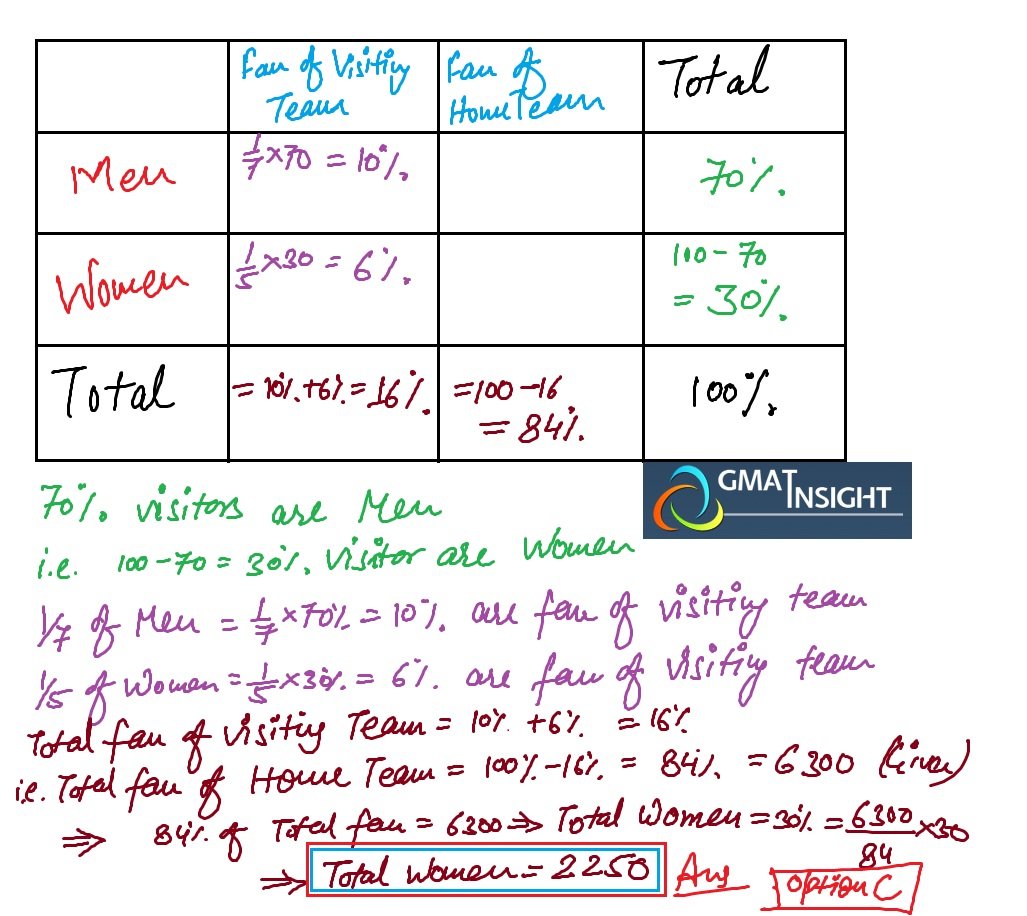 Fan of Visiting Team
Fan of Home Team
Total
Men
1/7×70 = 10%.
70%.
Women
1/5×30 = 6%.
100-70
= 30%.
Total
= 10%.+6%.= 16%.
=100-16
= 84%.
100%.
GMAT INSIGHT
70%. visitors are Men
i.e. 100-70 = 30%. Visitor are Women
1/7 of Men = 1/7×70%. = 10%. are fan of visiting team
1/5 of Women = 1/5×30%. = 6%. are fan of visiting team
Total fan of visiting Team = 10%. +6%. = 16%.
i.e. Total fan of Home Team = 100%.-16%. = 84%. = 6300 (Given)
⇒ 84%. of Total fan = 6300 ⇒ Total Women = 30%. = 6300/84 ×30
⇒ Total women = 2250 Ans Option C